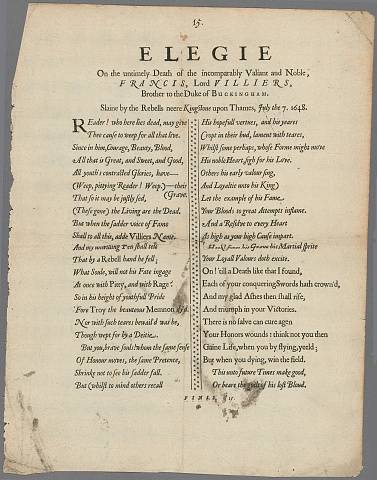 15.
ELEGIE
On the untimely Death of the incomparably Valiant and Noble,
FRANCIS, Lord VILLIERS,
Brother to the Duke of BUCKINGHAM.
Slaine by the Rebells neere Kingstone upon Thames, July the 7. 1648.
Reader! who here lies dead, may give
Thee cause to weep for all that live.
Since in him, Courage, Beauty, Blood,
All that is Great, and Sweet, and Good,
All youth's contracted Glories, have—
(Weep, pittying Reader! Weep.)—their
(Grave.
That so it may be justly sed,
(These gone) the Living are the Dead.
But when the sadder voice of Fame
Shall to all this, adde Villiers Name.
And my unwilling Pen shall tell
That by a Rebell hand he fell;
What Soule, will not his Fate ingage
At once with Pitty, and with Rage?
So in his height of youthfull Pride
'Fore Troy the beauteous Memnon
Nor with such teares bewail'd was he,
Though wept for by a Deitie.
But you, brave souls! whom the same sense
Of Honour moves, the same Pretence,
Shrinke not to see his sadder fall.
But (whilst to mind others recall
His hopefull vertues, and his yeares
Cropt in their bud, lament with teares,
Whilst some perhaps, whose Forme might move
His noble Heart, sigh for his Love.
Others his early valour sing,
And Loyaltie unto his King)
Let the example of his Fame,
Your Bloods to great Attempts inflame.
And a Resolve to every Heart
As high as your high Cause impart.
his Grave his Martial sprite
Your Loyall Valours doth excite.
On! 'till a Death like that I found,
Each of your conquering Swords hath crown'd,
And my glad Ashes then shall rise,
And triumph in your Victories.
There is no salve can cure agen
Your Honours wounds: think not you then
Gaine Life, when you by flying, yeeld;
But when you dying, win the field.
This unto future Times make good,
Or beare the guilt of his lost Blood.
FINIS.